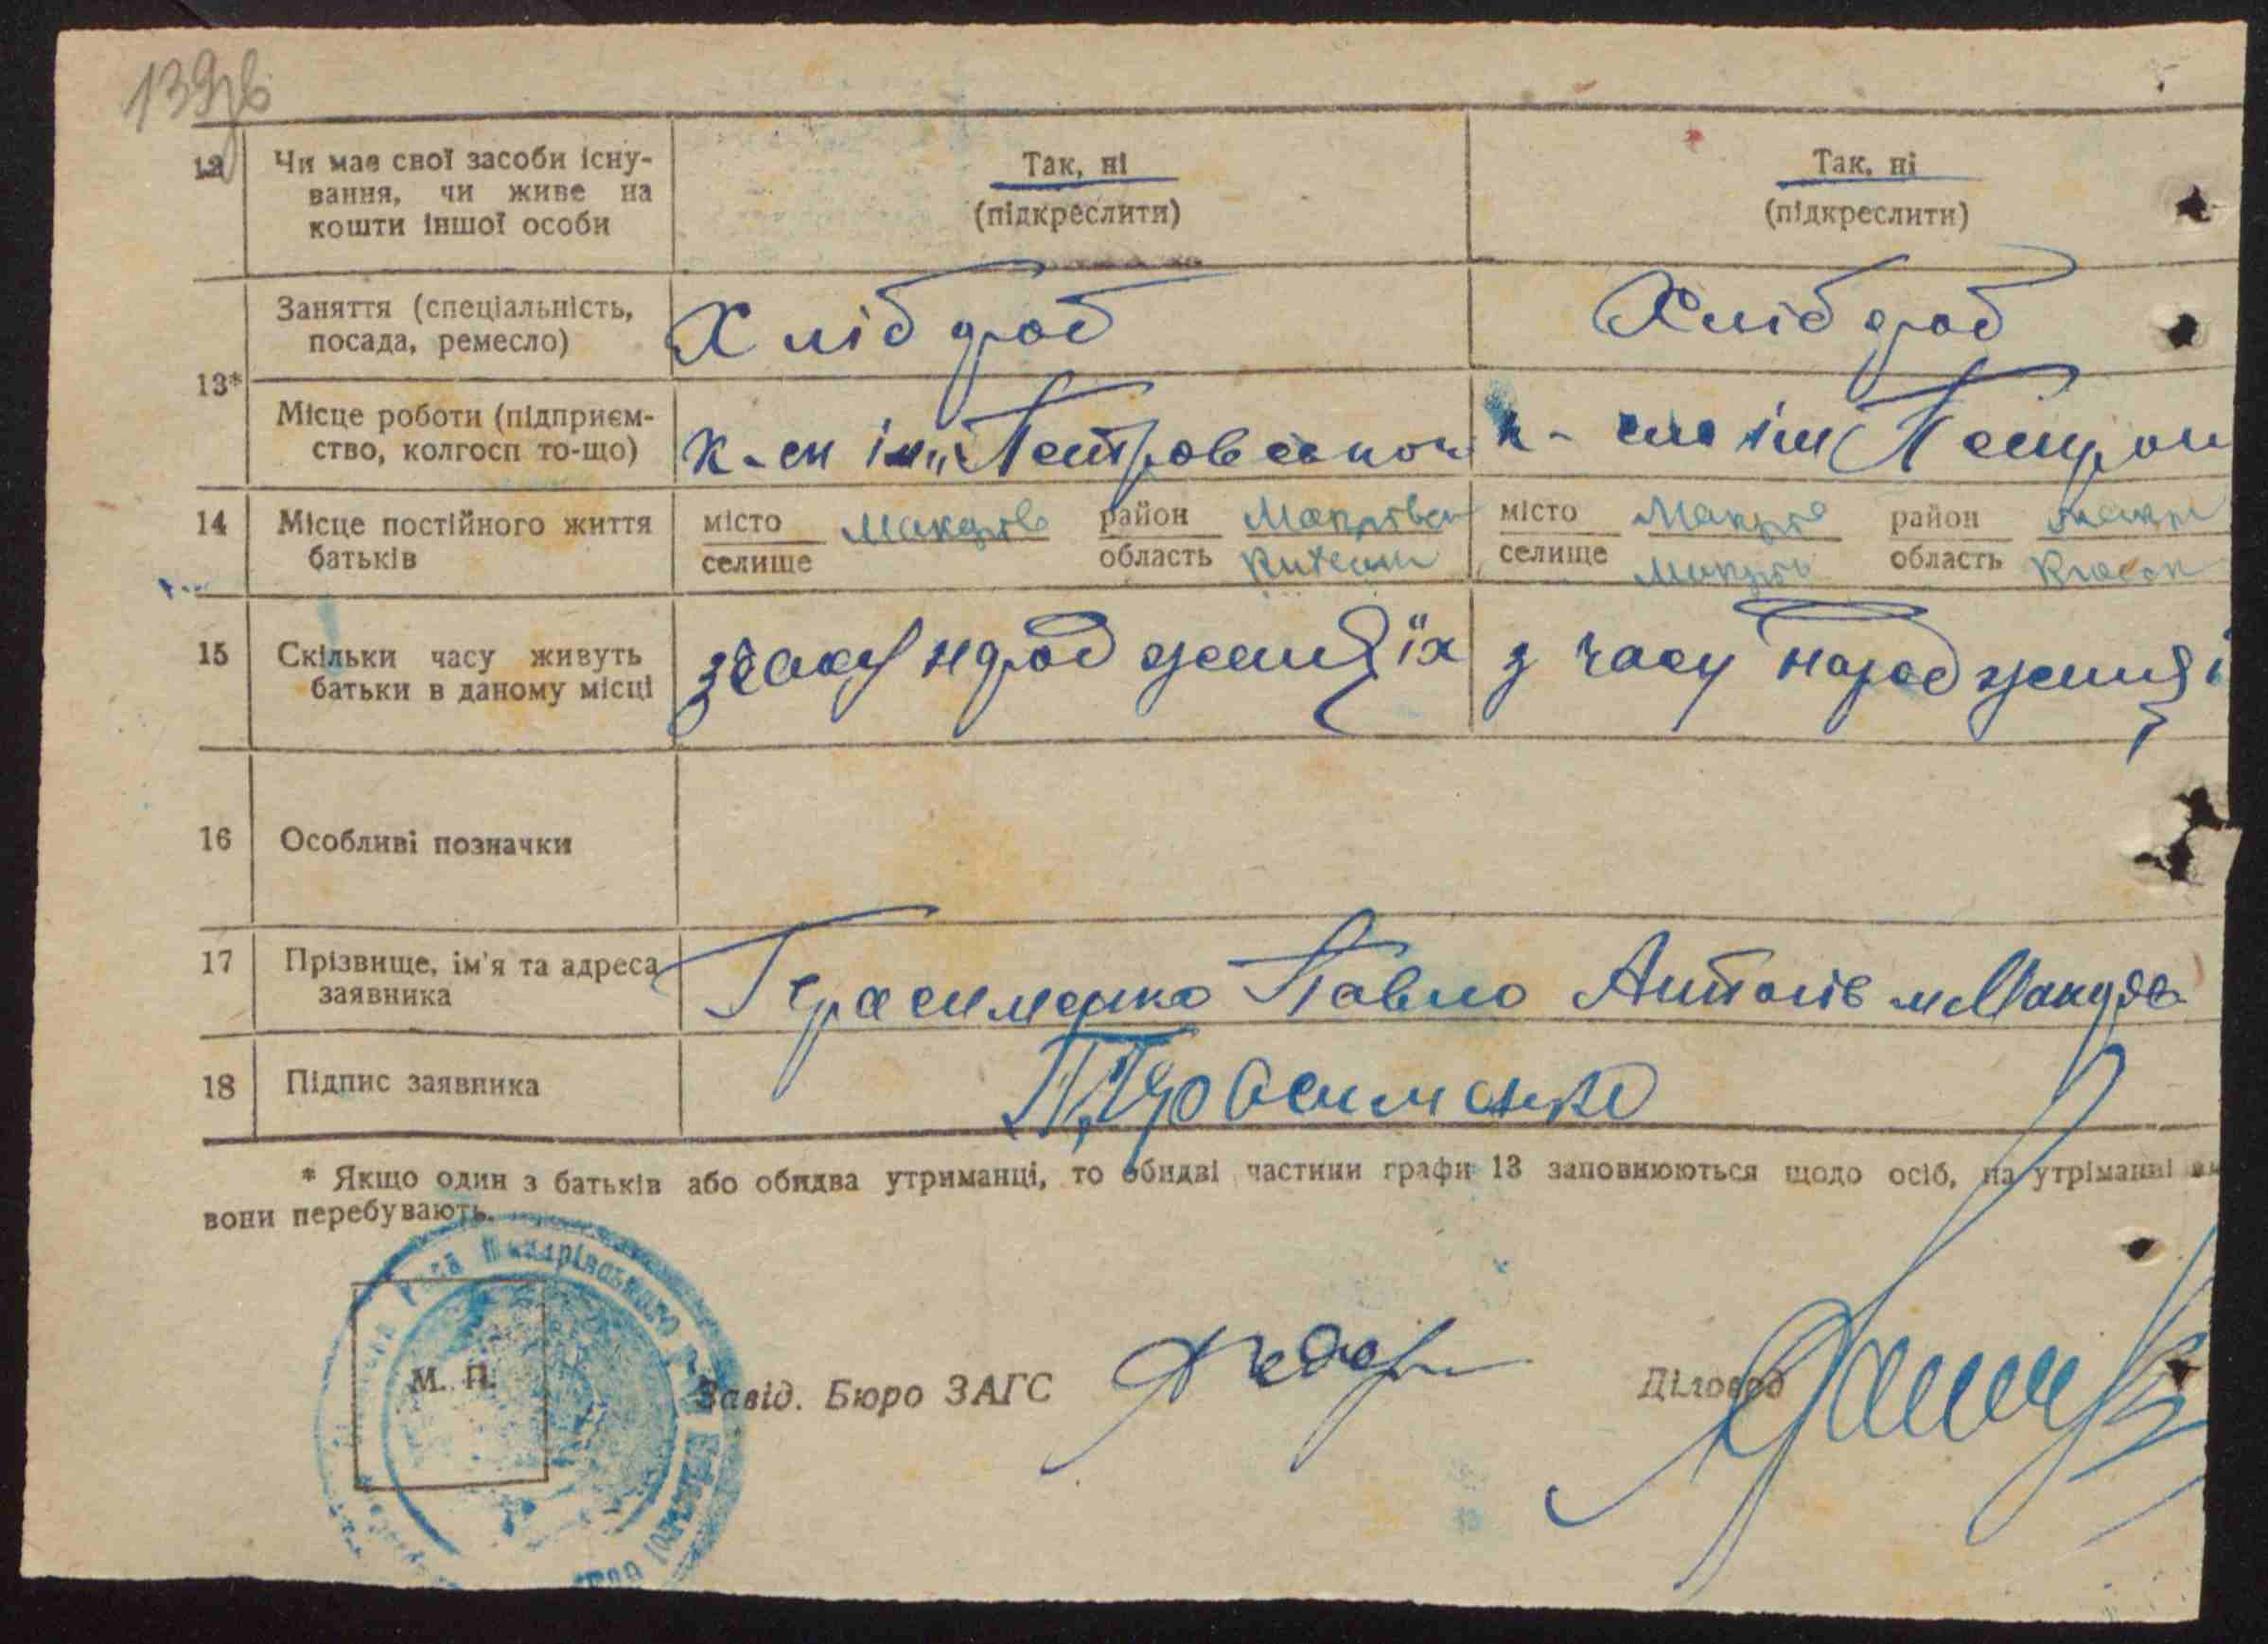 139зв
12 Чи має свої засоби існу-
вання, чи живе на
кошти іншої особи
Так, ні
(підкреслити)
Так, ні
(підкреслити)
13*
Заняття (спеціальність,
посада, ремесло)
Хлібороб
Хлібороб
Місце роботи (підприєм-
ство, колгосп то-що)
к-сп ім. Петровського
14 Місце постійного життя
батьків
місто
селище
Макарів
район
область
місто
селище
район
область
15 Скільки часу живуть
батьки в даному місці
з часу народження їх
з часу народження
16 Особливі позначки
17 Прізвище, ім'я та адреса
заявника
Герасименко Павло Антонів м Макарів
18 Підпис заявника
Герасименко
* Якщо один з батьків або обидва утриманці, то обидві частини графи 13 заповнюються щодо осіб, на утріманні
вони перебувають.
М. П.
Завід. Бюро ЗАГС
Діловод